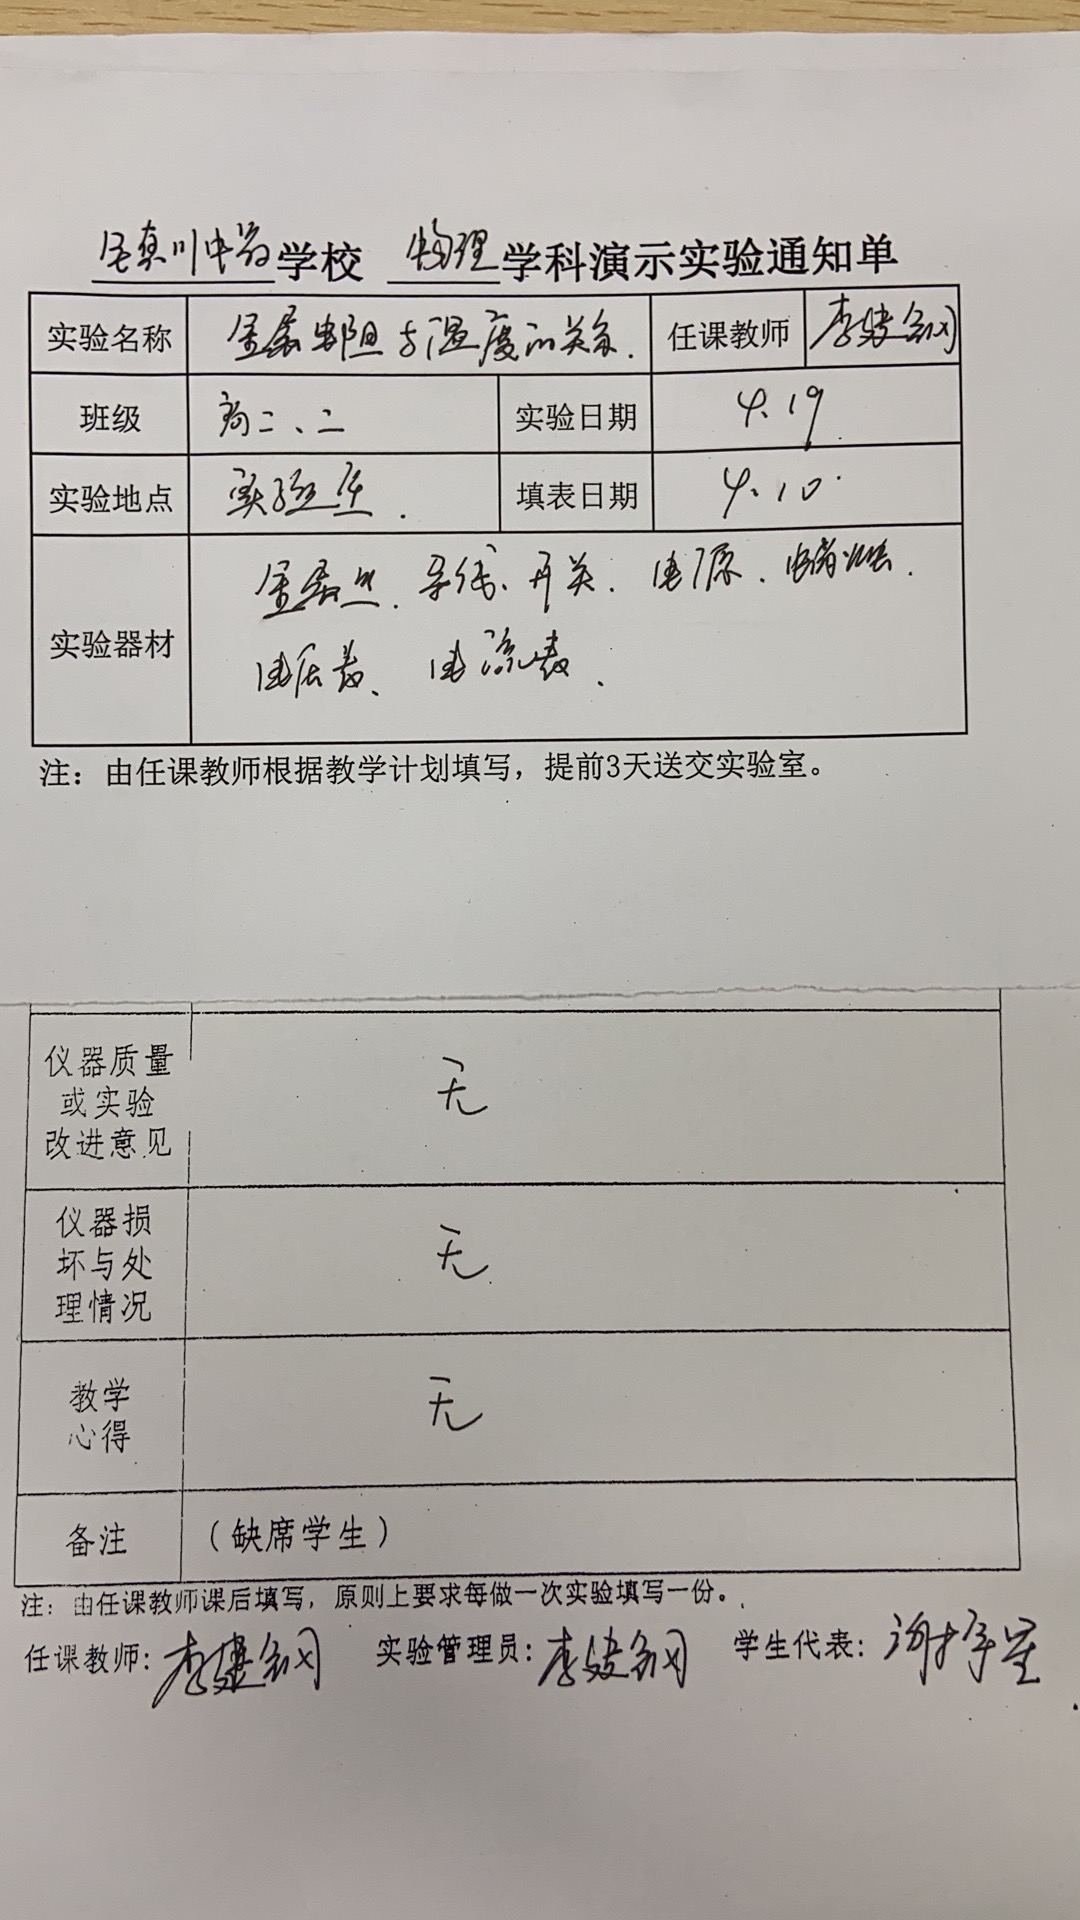 学校 物理 学科演示实验通知单
实验名称 金属电阻与温度的关系. 任课教师 李建钢
班级 高二、二 实验日期 4.19
实验地点 实验室. 填表日期 4.10
实验器材 金属丝、导线、开关、电源、
电压表、电流表、
注：由任课教师根据教学计划填写，提前3天送交实验室。
仪器质量
或实验
改进意见
无
仪器损
坏与处
理情况
无
教学
心得
无
备注 （缺席学生）
注：由任课教师课后填写，原则上要求每做一次实验填写一份。
任课教师：李建钢 实验管理员：李建钢 学生代表：